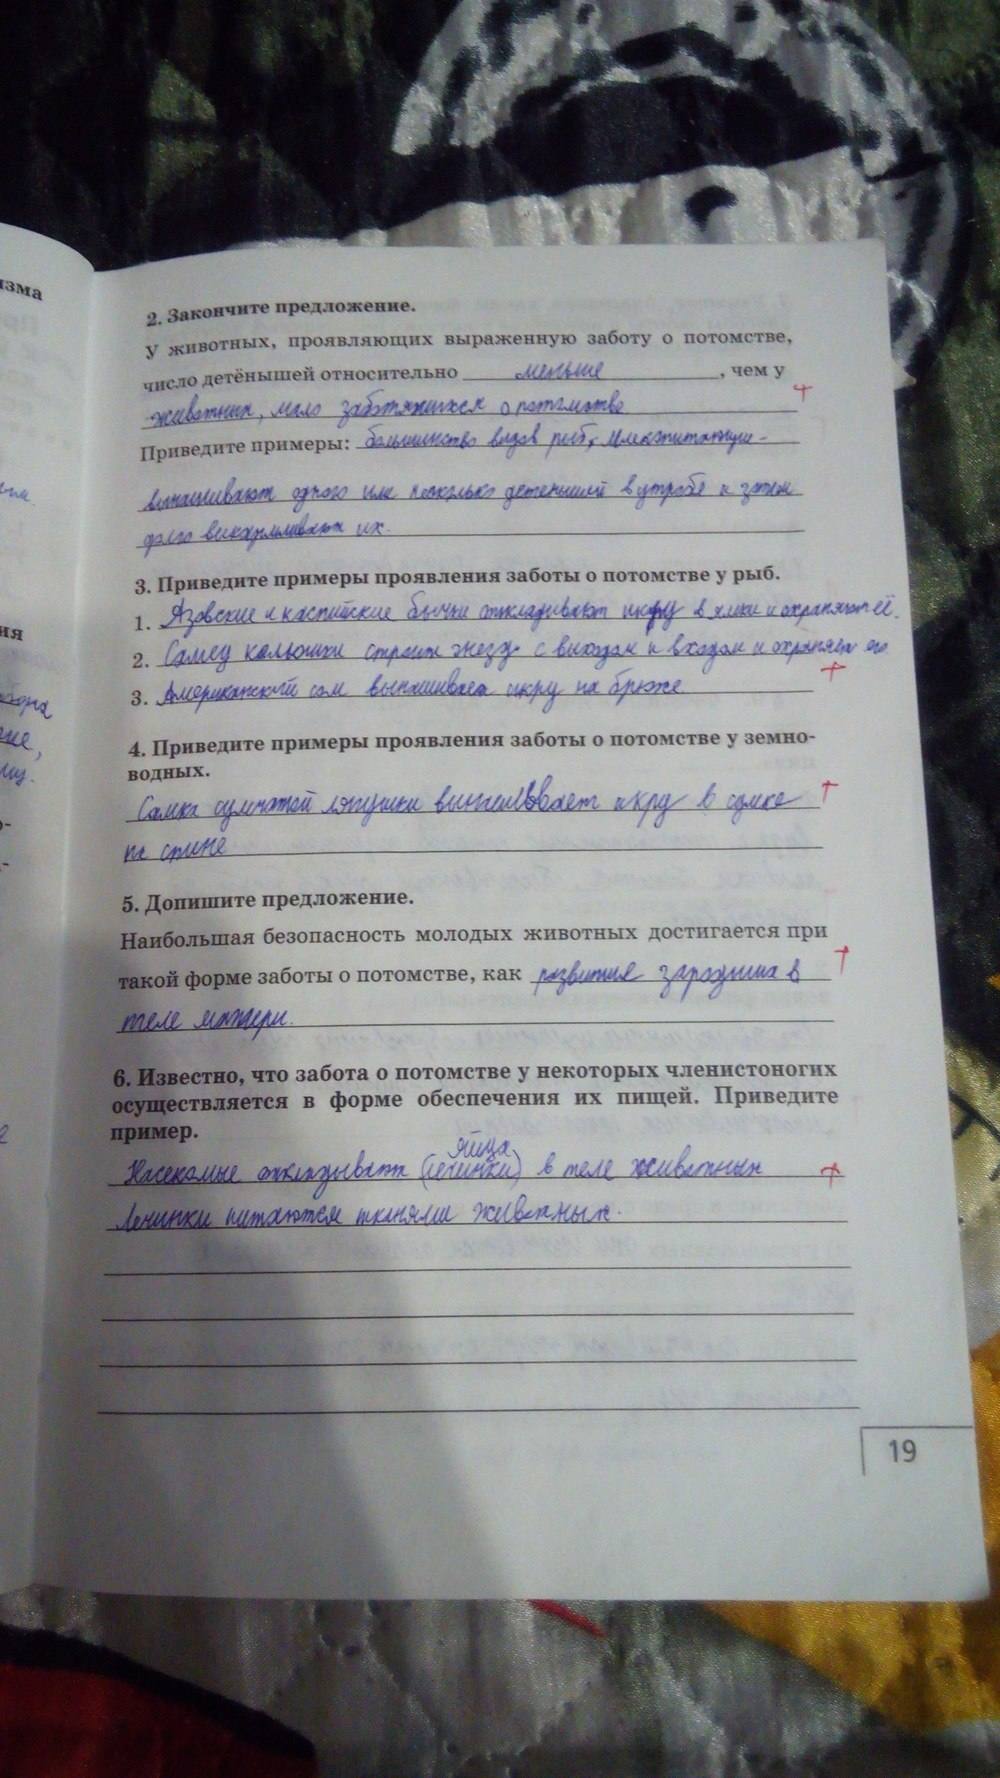 изма
ия
2. Закончите предложение.
У животных, проявляющих выраженную заботу о потомстве,
число детёнышей относительно меньше, чем у
животных, мало заботящихся о потомстве
Приведите примеры: большинство видов рыб, млекопитающие -
вынашивают одного или несколько детенышей в утробе и затем
долго выкармливают их.
3. Приведите примеры проявления заботы о потомстве у рыб.
1. Азовские и каспийские бычки откладывают икру в ямки и охраняют её.
2. Самец колюшки строит гнездо с выходом и входом и охраняет его
3. Американский сом вынашивает икру на брюхе
4. Приведите примеры проявления заботы о потомстве у земно-
водных.
Самка сумчатой лягушки вынашивает икру в сумке
на спине
5. Допишите предложение.
Наибольшая безопасность молодых животных достигается при
такой форме заботы о потомстве, как развитие зародыша в
теле матери.
6. Известно, что забота о потомстве у некоторых членистоногих
осуществляется в форме обеспечения их пищей. Приведите
пример.
яйца
Насекомые откладывать (личинки) в теле животных
Личинки питаются тканями животных.
19